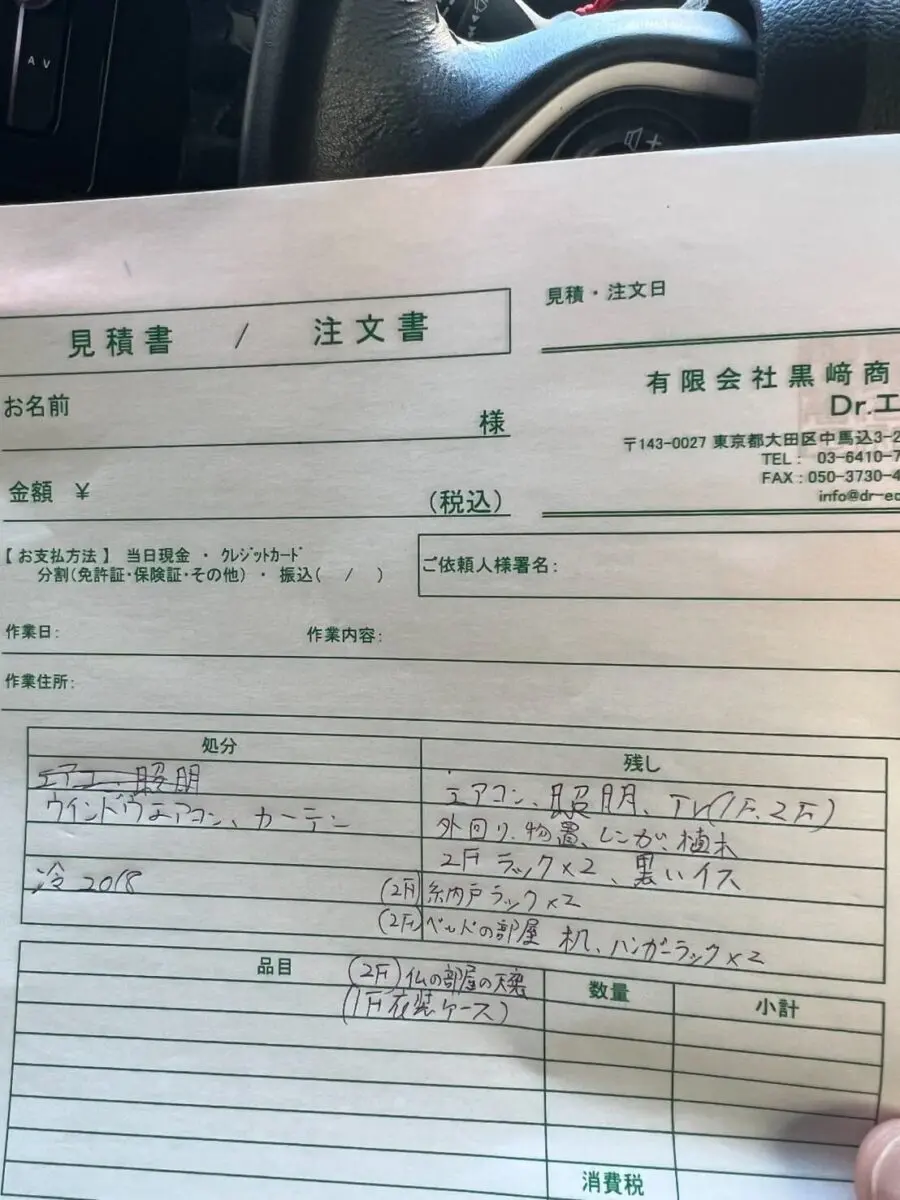 見積書 / 注文書
見積・注文日
お名前
様
有限会社黒﨑商
Dr.エ
〒143-0027 東京都大田区中馬込3-2
TEL : 03-6410-7
FAX : 050-3730-4
info@dr-ec
金額 ¥
(税込)
【お支払方法】 当日現金 ・ クレジットカード
分割(免許証・保険証・その他) ・ 振込( / )
ご依頼人様署名:
作業日:
作業内容:
作業住所:
処分
残し
エアコン、照明
ウインドウエアコン、カーテン
冷 2018
エアコン、照明、TV(1F.2F)
外回り、物置、レンガ、植木
2F ラック×2、黒いイス
(2F) 納戸ラック×2
(2F) ベッドの部屋 机、ハンガーラック×2
品目
(2F) 仏の部屋の天
(1F衣装ケース)
数量
小計
消費税